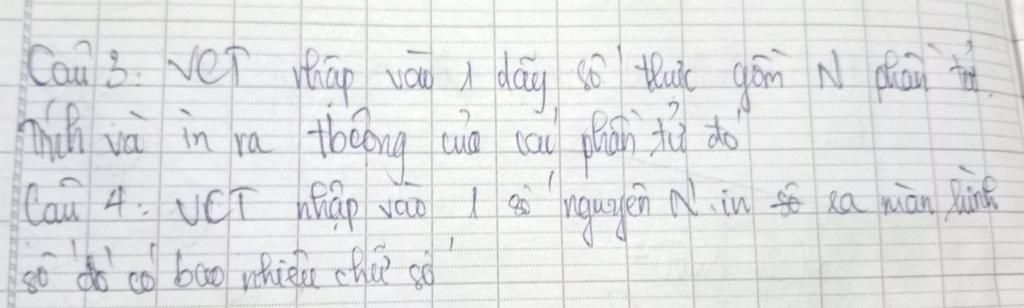 Câu 3: VCT nhập vào 1 dãy số thực gồm N phần tử.
Tính và in ra tổng của các phần tử đó
Câu 4: VCT nhập vào 1 số nguyên N. in ra màn hình
số đó có bao nhiêu chữ số